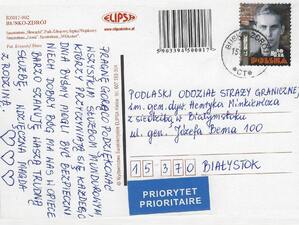 BUSKO-ZDRÓJ
ELIPSA
5903394500017
POLSKA
PRAGNĘ GORĄCO PODZIĘKOWAĆ
WSZYSTKIM SŁUŻBOM MUNDUROWYM
KTÓRZY PRZYCZYNIAJĄ SIĘ KAŻDEGO
DNIA BYŚMY MOGLI BYĆ BEZPIECZNI
NIECH DOBRY BÓG MA WAS W OPIECE
BARDZO SZANUJĘ WASZĄ TRUDNĄ
SŁUŻBĘ. WDZIĘCZNA MAGDA
Z RODZINĄ.
PODLASKI ODDZIAŁ STRAŻY GRANICZNEJ
im. gen. dyw. Henryka Minkiewicza
z siedzibą w Białymstoku
ul. gen. Józefa Bema 100
15370 BIAŁYSTOK
PRIORYTET
PRIORITAIRE